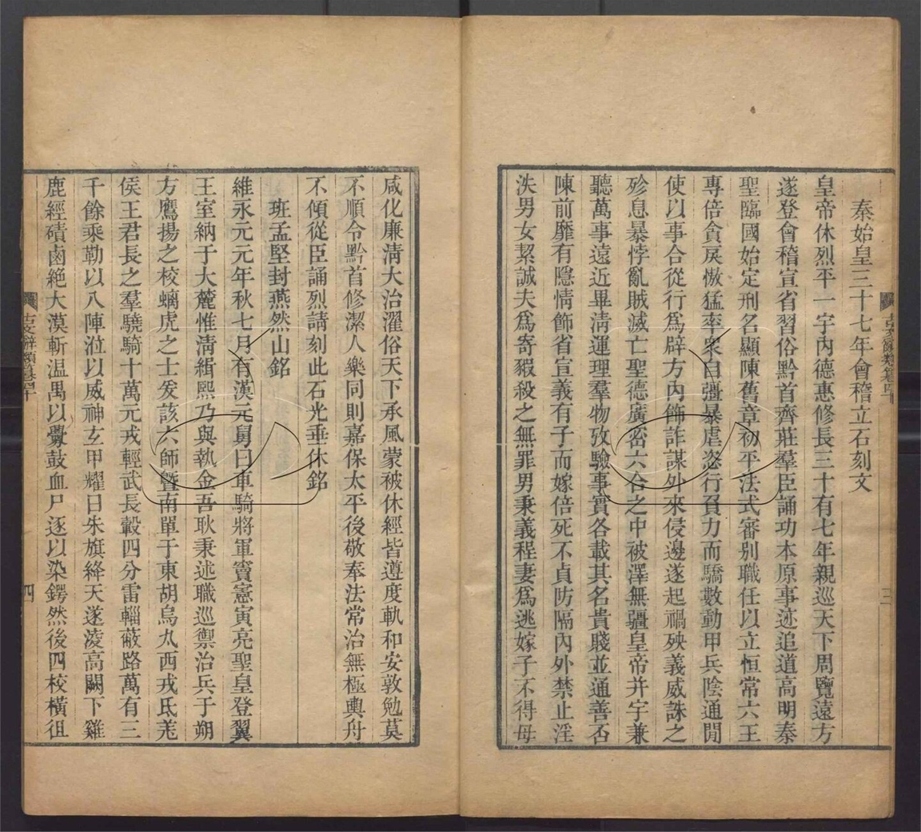 秦始皇三十七年會稽立石刻文
皇帝休烈平一宇內德惠修長三十有七年親巡天下周覽遠方
遂登會稽宣省習俗黔首齊莊羣臣誦功本原事迹追道高明秦
聖臨國始定刑名顯陳舊章初平法式審別職任以立恒常六王
專倍貪戾慠猛率衆自彊暴虐恣行負力而驕數動甲兵陰通閒
使以事合從行爲辟方內飾詐謀外來侵邊遂起禍殃義威誅之
殄息暴悖亂賊滅亡聖德廣密六合之中被澤無疆皇帝并宇兼
聽萬事遠近畢清運理羣物攷驗事實各載其名貴賤並通善否
陳前靡有隱情飾省宣義有子而嫁倍死不貞防隔內外禁止淫
泆男女絜誠夫爲寄豭殺之無罪男秉義程妻爲逃嫁子不得母
三
咸化廉清大治濯俗天下承風蒙被休經皆遵度軌和安敦勉莫
不順令黔首修潔人樂同則嘉保太平後敬奉法常治無極輿舟
不傾從臣誦烈請刻此石光垂休銘
班孟堅封燕然山銘
維永元元年秋七月有漢元舅曰車騎將軍竇憲寅亮聖皇登翼
王室納于大麓惟清緝熙乃與執金吾耿秉述職巡禦治兵于朔
方鷹揚之校螭虎之士爰該六師暨南單于東胡烏丸西戎氐羌
侯王君長之羣驍騎十萬元戎輕武長轂四分雷輜蔽路萬有三
千餘乘勒以八陣涖以威神玄甲耀日朱旗絳天遂淩高闕下雞
鹿經磧鹵絕大漠斬温禺以釁鼓血尸逐以染鍔然後四校橫徂
四